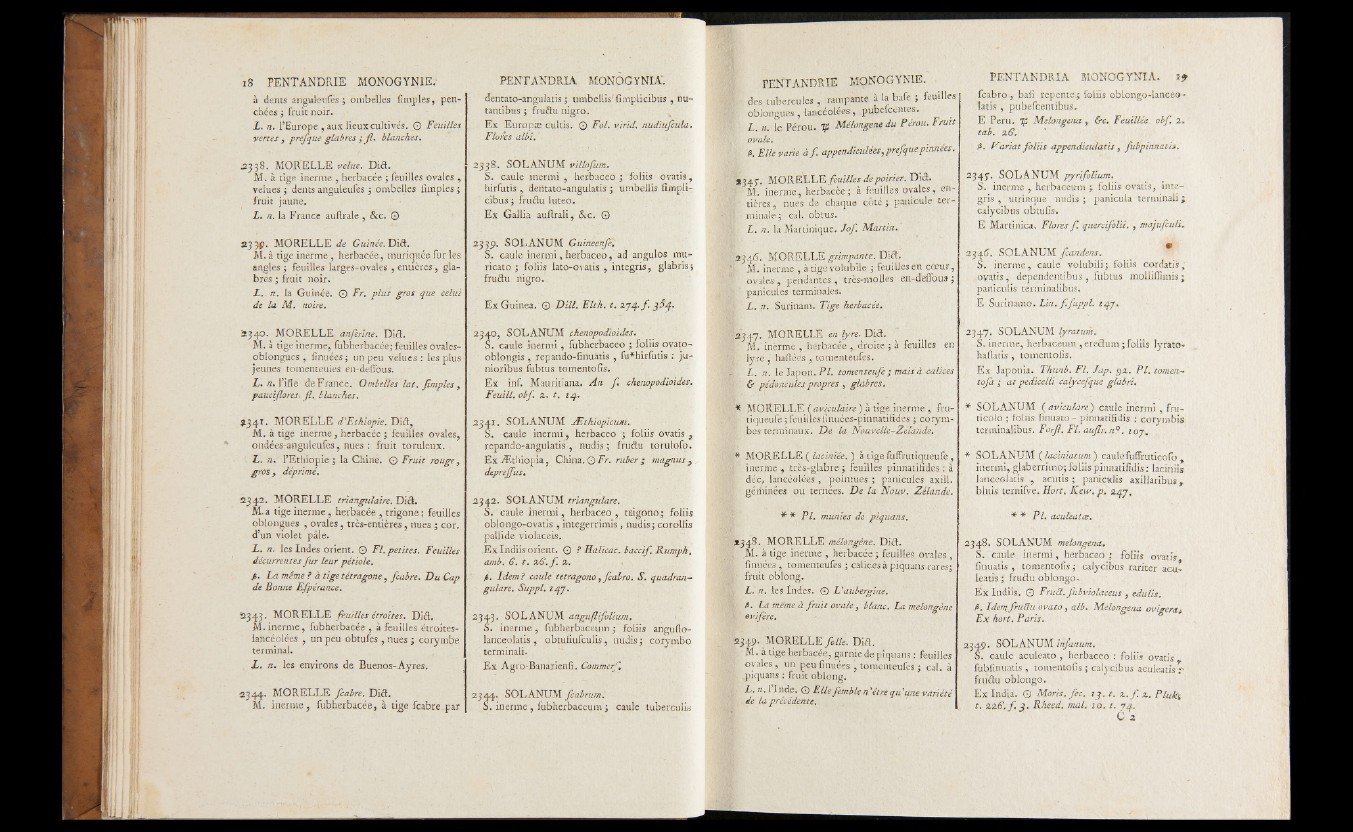 18 PENTANDRIE MONOGYNIE.
à dents anguleuſes ; ombelles ſimples, pen-
chées ; fruit noir.
L. n. l'Europe, aux lieux cultivés. ☉ Feuilles
vertes, preſque glabres ; fl. blanches.
2338. MORELLE velue. Dict.
M. à tige inerme, herbacée ; feuilles ovales,
velues ; dents anguleuſes ; ombelles ſimples ;
fruit jaune.
L. n. la France auſtrale, &c. ☉
2339. MORELLE de Guinée. Dict.
M. à tige inerme, herbacée, muriquée ſur les
angles ; feuilles larges-ovales, entières, gla-
bres ; fruit noir.
L. n. la Guinée. ☉ Fr. plus gros que celui
de la M. noire.
2340. MORELLE anſérine. Dict.
M. à tige inerme, ſubherbacée; feuilles ovales-
oblongues, ſinuées ; un peu velues : les plus
jeunes tomenteuſes en-deſſous.
L. n. l'iſle de France. Ombelles lat. ſimples,
pauciflores. fl. blanches.
2341. MORELLE d'Ethiopie. Dict.
M. à tige inerme, herbacée ; feuilles ovales,
ondées-anguleuſes, nues : fruit toruleux.
L. n. l'Ethiopie ; la Chine. ☉ Fruit rouge,
gros, déprimé.
2342. MORELLE triangulaire. Dict.
M. a tige inerme, herbacée, trigone ; feuilles
oblongues, ovales, très-entières, nues ; cor.
d'un violet pâle.
L. n. les Indes orient. ☉ Fl. petites. Feuilles
décurrentes ſur leur pétiole.
β. La même ? à tige tétragone, ſcabre. Du Cap
de Bonne Eſpérance.
2343. MORELLE feuilles étroites. Dict.
M. inerme, ſubherbacée, à feuilles étroites-
lancéolées, un peu obtuſes, nues ; corymbe
terminal.
L. n. les environs de Buenos-Ayres.
2344. MORELLE ſcabre. Dict.
M. inerme, ſubherbacée, à tige ſcabre par
PENTANDRIA MONOGYNIA.
dentato-angulatis ; umbellis ſimplicibus, nu-
tantibus ; fructu nigro.
Ex Europæ cultis. ☉ Fol. virid. nudiuſcula.
Flores albi.
2338. SOLANUM villoſum.
S. caule inermi, herbaceo ; foliis ovatis,
hirſutis, dentato-angulatis ; umbellis ſimpli-
cibus ; fructu luteo.
Ex Gallia auſtrali, &c. ☉
2339. SOLANUM Guineenſe.
S. caule inermi, herbaceo, ad angulos mu-
ricato ; foliis lato-ovatis, integris, glabris ;
fructu nigro.
Ex Guinea. ☉ Dill. Elth. t. 274. f. 354.
2340, SOLANUM chenopodioides.
S. caule inermi, ſubherbaceo ; foliis ovato-
oblongis, repando-ſinuatis, ſu*hirſutis : ju-
nioribus ſubtus tomentoſis.
Ex inſ. Mauritiana. An ſ. chenopodioides.
Feuill. obſ. 2. t. 14.
2341. SOLANUM Æthiopicum.
S. caule inermi, herbaceo ; foliis ovatis,
repando-angulatis, nudis ; fructu toruloſo.
Ex Æthiopia, China. ☉ Fr. ruber ; magnus,
depreſſus.
2342. SOLANUM triangulare.
S. caule inermi, herbaceo, trigono ; foliis
oblongo-ovatis, integerrimis, nudis ; corollis
pallide violaceis.
Ex Indiis orient. ☉ ? Halicac. baccif. Rumph.
amb. 6. t. 26. f. 2.
β. Idem ? caule tetragono, ſcabro. S. quadran-
gulare. Suppl. 147.
2343. SOLANUM anguſtifolium.
S. inerme, ſubherbaceum ; foliis anguſto-
lanceolatis, obtuſiuſculis, nudis ; corymbo
terminali.
Ex Agro-Banarienſi. Commerſ.
2344. SOLANUM ſcabrum.
S. inerme, ſubherbaceum ; caule tuberculis
PENTANDRIE MONOGYNIE.
des tubercules, rampante à la baſe ; feuilles
oblongues, lancéolées, pubeſcentes.
L. n. le Pérou. ♃ Mélongene du Pérou. Fruit
ovale.
β. Elle varie à f. appendiculées, preſque pinnées.
2345. MORELLE feuilles de poirier. Dict.
M. inerme, herbacée ; à feuilles ovales, en-
tières, nues de chaque côté ; panicule ter-
minale ; cal. obtus.
L. n. la Martinique. Joſ. Martin.
2346. MORELLE grimpante. Dict.
M. inerme, à tige volubile ; feuilles en cœur,
ovales, pendantes, très-molles en-deſſous ;
panicules terminales.
L. n. Surinam. Tige herbacée.
2347. MORELLE en lyre. Dict.
M. inerme, herbacée, droite ; à feuilles en
lyre, haſtées, tomenteuſes.
L. n. le Japon. Pl. tomenteuſe ; mais à calices
& pédoncules propres, glabres.
* MORELLE (aviculaire) à tige inerme, fru-
tiqueuſe ; feuilles ſinuées-pinnatifides ; corym-
bes terminaux. De la Nouvelle-Zélande.
* MORELLE (laciniée.) à tige ſuffrutiqueuſe,
inerme, très-glabre ; feuilles pinnatifides : à
déc. lancéolées, pointues ; panicules axill.
géminées ou ternées. De la Nouv. Zélande.
* * Pl. munies de piquans.
2348. MORELLE mélongène. Dict.
M. à tige inerme, herbacée ; feuilles ovales,
ſinuées, tomenteuſes ; calices à piquans rares ;
fruit oblong.
L. n. les Indes. ☉ L'aubergine.
β. La même à fruit ovale, blanc. La melongène
ovifère.
2349. MORELLE folle. Dict.
M. à tige herbacée, garnie de piquans : feuilles
ovales, un peu ſinuées, tomenteuſes ; cal. à
piquans : fruit oblong.
L. n. l'Inde. ☉ Elle ſemble n'être qu'une variété
de la précédente.
PENTANDRIA MONOGYNIA. 19
ſcabro, baſi repente ; foliis oblongo-lanceo-
latis, pubeſcentibus.
E Peru. ♃ Melongena, &c. Feuillée. obſ. 2.
tab. 26.
β. Variat foliis appendiculatis, ſubpinnatis.
2345. SOLANUM pyrifolium.
S. inerme, herbaceum ; foliis ovatis, inte-
gris, utrinque nudis ; panicula terminali ;
calycibus obtuſis.
E Martinica. Flores ſ. quercifolii., majuſculi.
2346. SOLANUM ſcandens.
S. inerme, caule volubili ; foliis cordatis,
ovatis, dependentibus, ſubtus molliſſimis ;
paniculis terminalibus.
E Surinamo. Lin. f. ſuppl. 147.
2347. SOLANUM lyratum.
S. inerme, herbaceum, erectum ; foliis lyrato-
haſtatis, tomentoſis.
Ex Japonia. Thunb. Fl. Jap. 92. Pl. tomen-
toſa ; at pedicelli calyceſque glabri.
* SOLANUM (aviculare) caule inermi, fru-
ticoſo ; foliis ſinuato-pinnatifidis : corymbis
terminalibus. Forſt. Fl. auſtr. n°. 107.
* SOLANUM (laciniatum) caule ſuffruticoſo,
inermi, glaberrimo; foliis pinnatifidis : laciniis
lanceolatis, acutis ; paniculis axillaribus,
binis terniſve. Hort. Kew. p. 247.
* * Pl. aculeatæ.
2348. SOLANUM melongena.
S. caule inermi, herbaceo ; foliis ovatis,
ſinuatis, tomentoſis ; calycibus rariter acu-
leatis ; fructu oblongo.
Ex Indiis. ☉ Fruct. ſubviolaceus, edulis.
β. Idem fructu ovato, alb. Melongena ovigera.
Ex hort. Paris.
2349. SOLANUM inſanum.
S. caule aculeato, herbaceo : foliis ovatis,
ſubſinuatis, tomentoſis ; calycibus aculeatis :
fructu oblongo.
Ex India. ☉ Moriſ. ſec. 13. t. 2. f. 2. Pluk.
t. 226. f. 3. Rheed. mal. 10. t. 74.
C 2